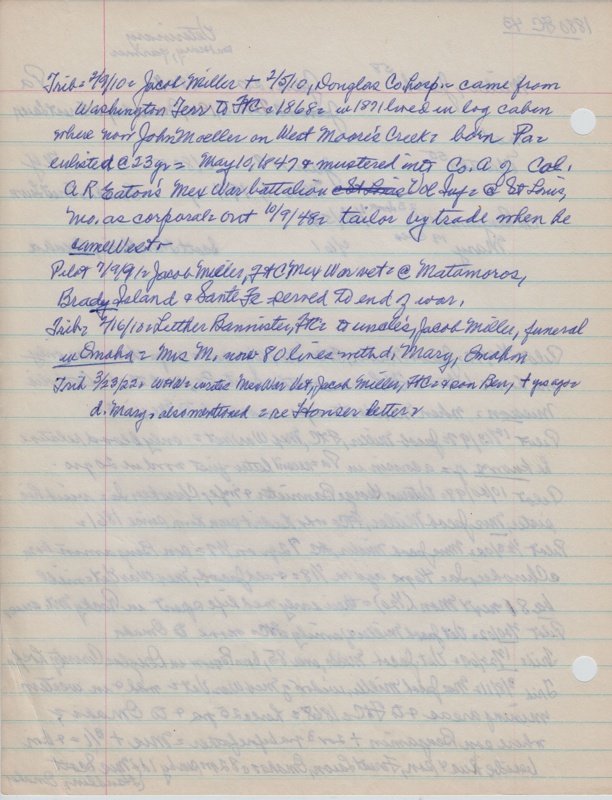 Trib = 2/9/10 = Jacob Miller + 2/5/10, Douglas Co Hosp. = came from
Washington Terr to FtC = 1868 = in 1871 lived in log cabin
where now John Moeller on West Moore's Creek = born Pa =
enlisted @ 23 yr = May 10, 1847 & mustered into Co. A. of Col.
A. R. Eaton's Mex War battalion Vol Inf = @ St Louis,
Mo. as corporal = out 10/9/48 = tailor by trade when he
came West =
Pilot 7/9/91 = Jacob Miller, FtC Mex War vet = @ Matamoros,
Brady Island & Sante Fe = served to end of war.
Trib = 2/16/10 = Luther Bannister, FtC = to uncle's, Jacob Miller, funeral
in Omaha = Mrs M. now 80 lives with d, Mary, Omaha
Trib 3/23/22 = Mex War Vet, Jacob Miller, FtC = & son Ben, + yrs ago =
d. Mary, also mentioned = re Honser letter =